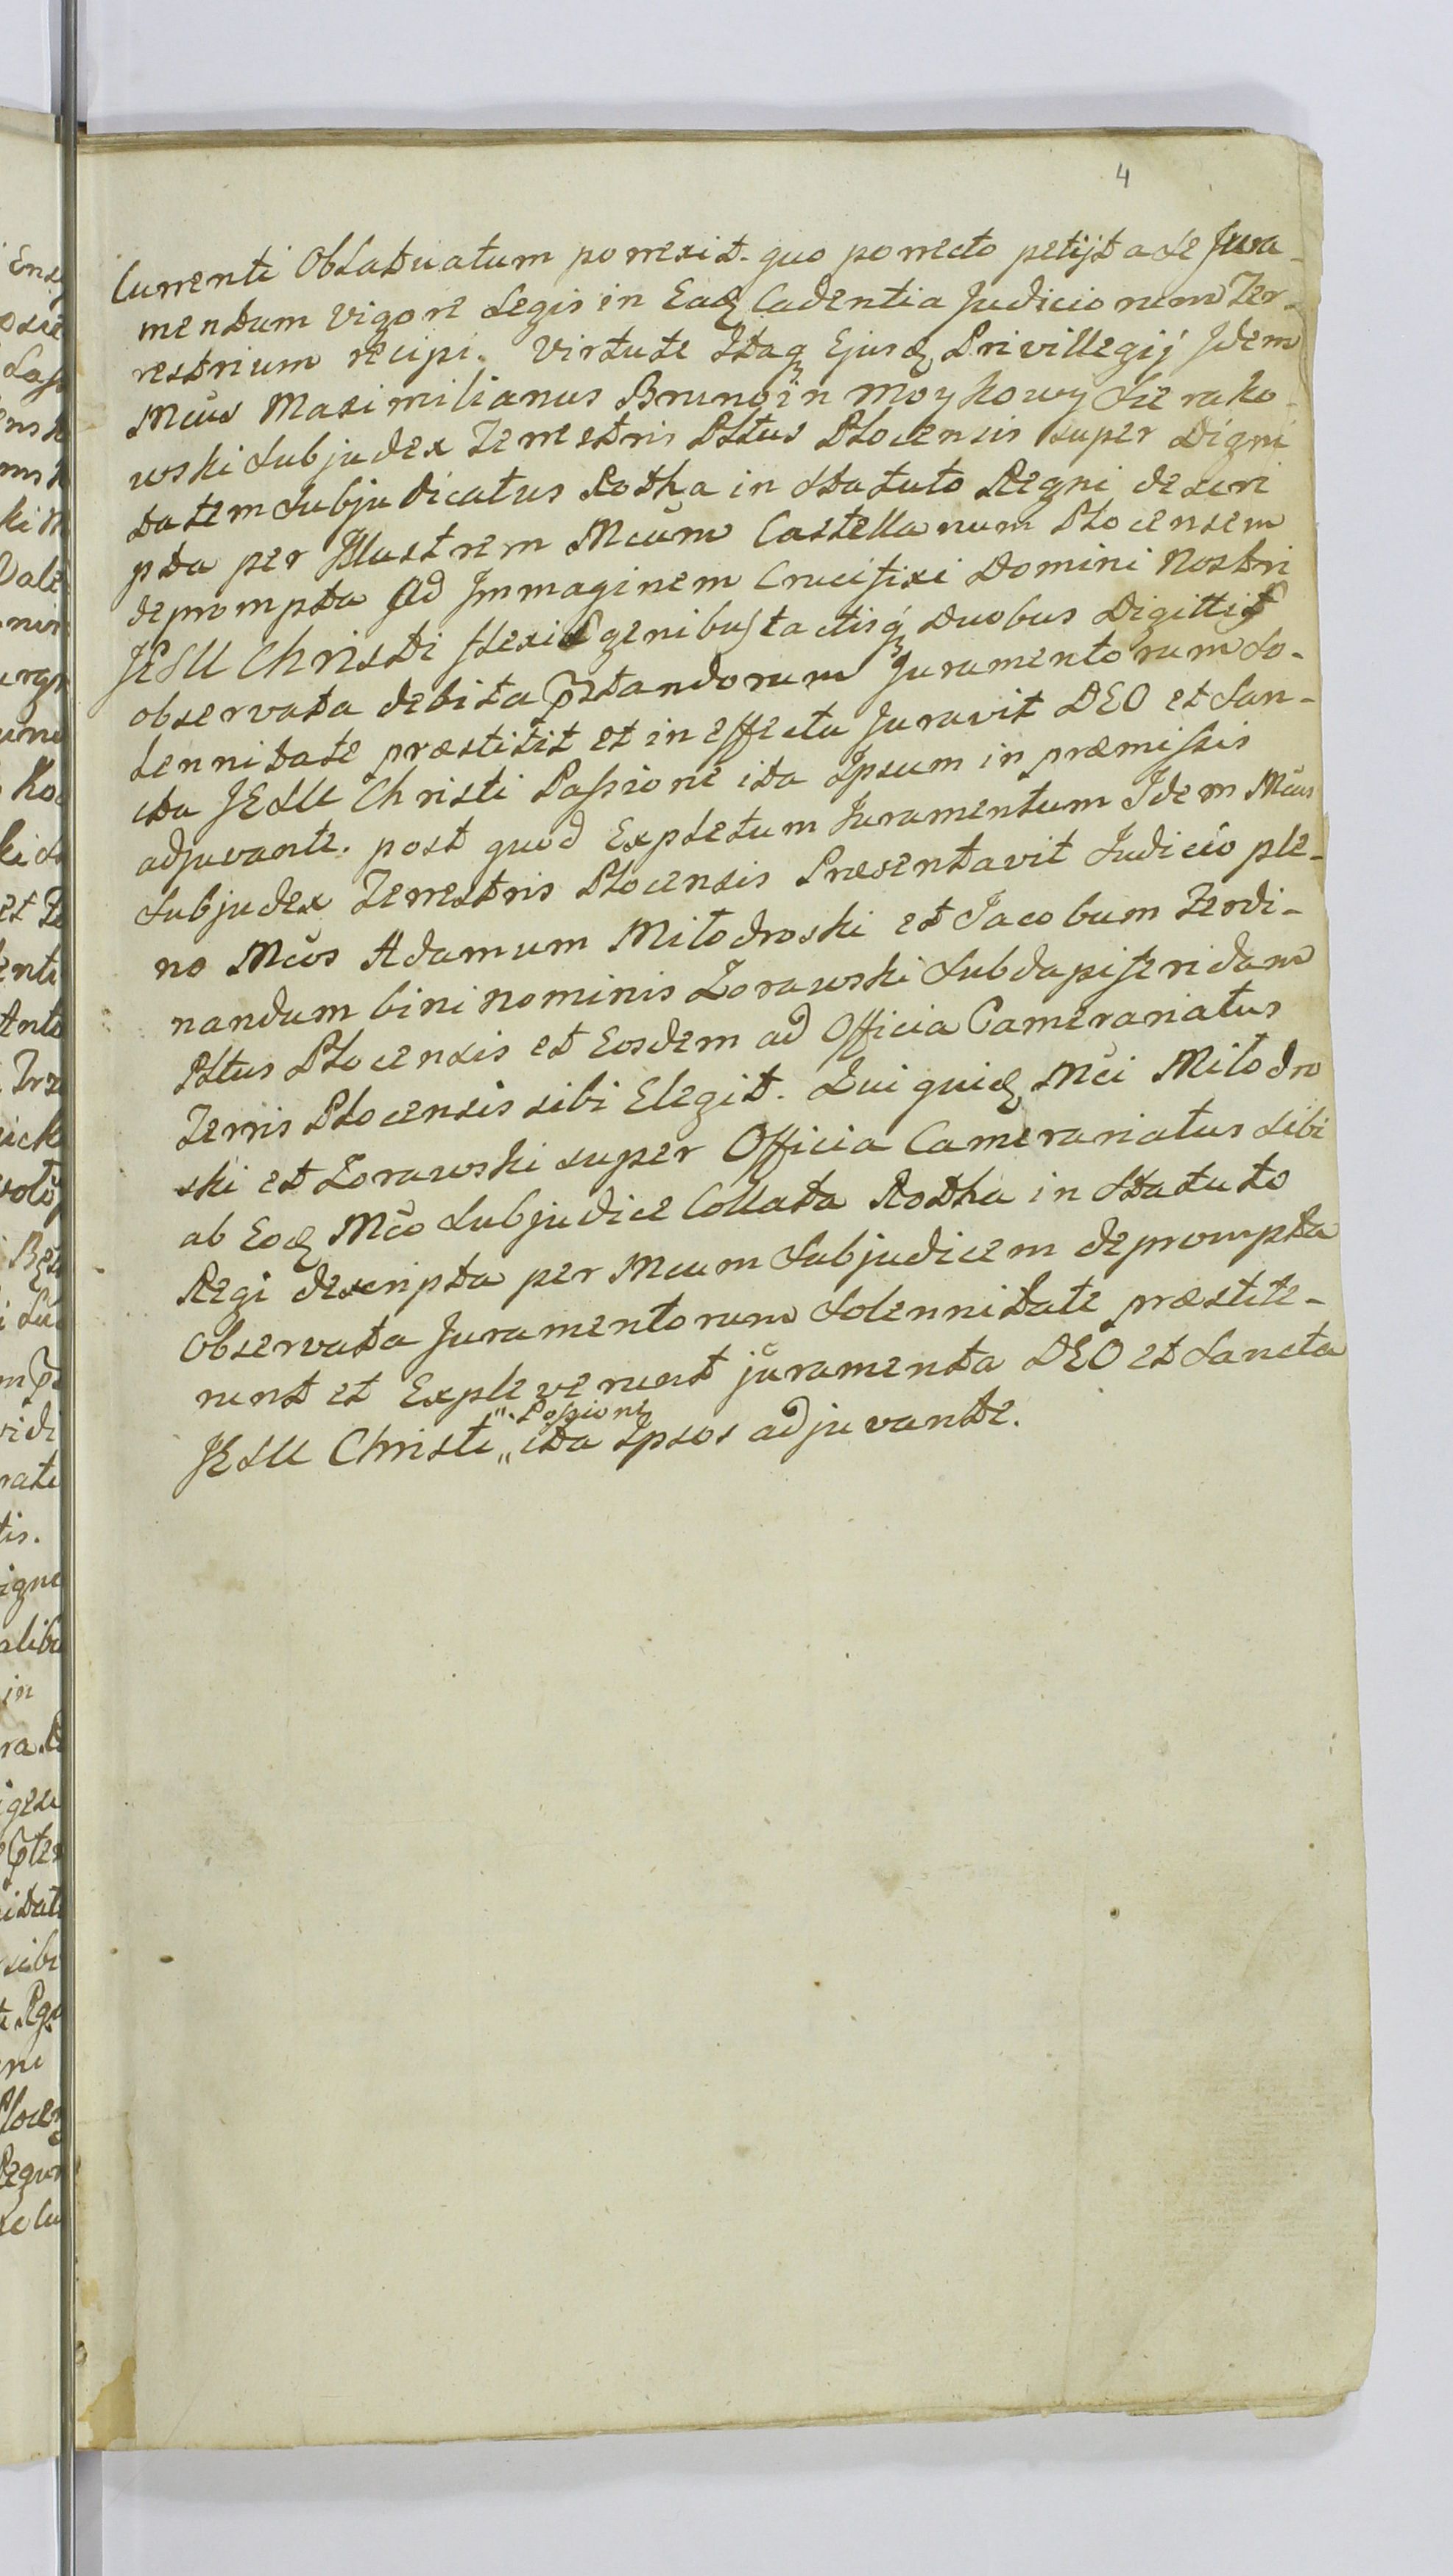 4
Currenti Oblatuatum porrexit. quo porrecto petijt a se Jura-
mentum vigore Legis in Eadē Cadentia Judiciorum Ter-
restrium recipi. Virtute Itaq Ejusdē Privillegij Jdem
Mcus Maximilianus Bruno in Moykowy Sierako-
wski Subjudex Terrestris Plttus Plocensis super Digni
tatem Subjudicatus Rotha in Statuto Regni descri
pta per Jllustrem Mcum Castellanum Plocensem
deprompta Ad Jmmaginem Crucifixi Domini Nostri
JESU Christi flexis genibus tactisq duobus Digittis
observata debita pstandorum Juramentorum So-
lennitate præstitit et in effectu Juravit DEO et San-
cta JESU Christi Passione ita Ipsum in præmissis
adjuvante. post quod Expletum Juramentum Idem Mcus
Subjudex Terrestris Plocensis Præsentavit Judicio ple-
no Mcos Adamum Miłodroski et Jacobum Ferdi-
nandum bini nominis Zorawski Subdapiferidam
Plttus Plocensis et Eosdem ad Officia Camerariatus
Terris Plocensis sibi Elegit. Qui quidē Mci Miłodro
ski et Zorawski super Officia Camerariatus sibi
ab Eodē Mco Subjudice Collata Rotha in Statuto
Regi descripta per Mcum Subjudicem deprompta
observata Juramentorum Solennitate præstite-
runt et Expleverunt juramenta DEO et Sancta
JESU Christi „ Passione ita Ipsos adjuvante.